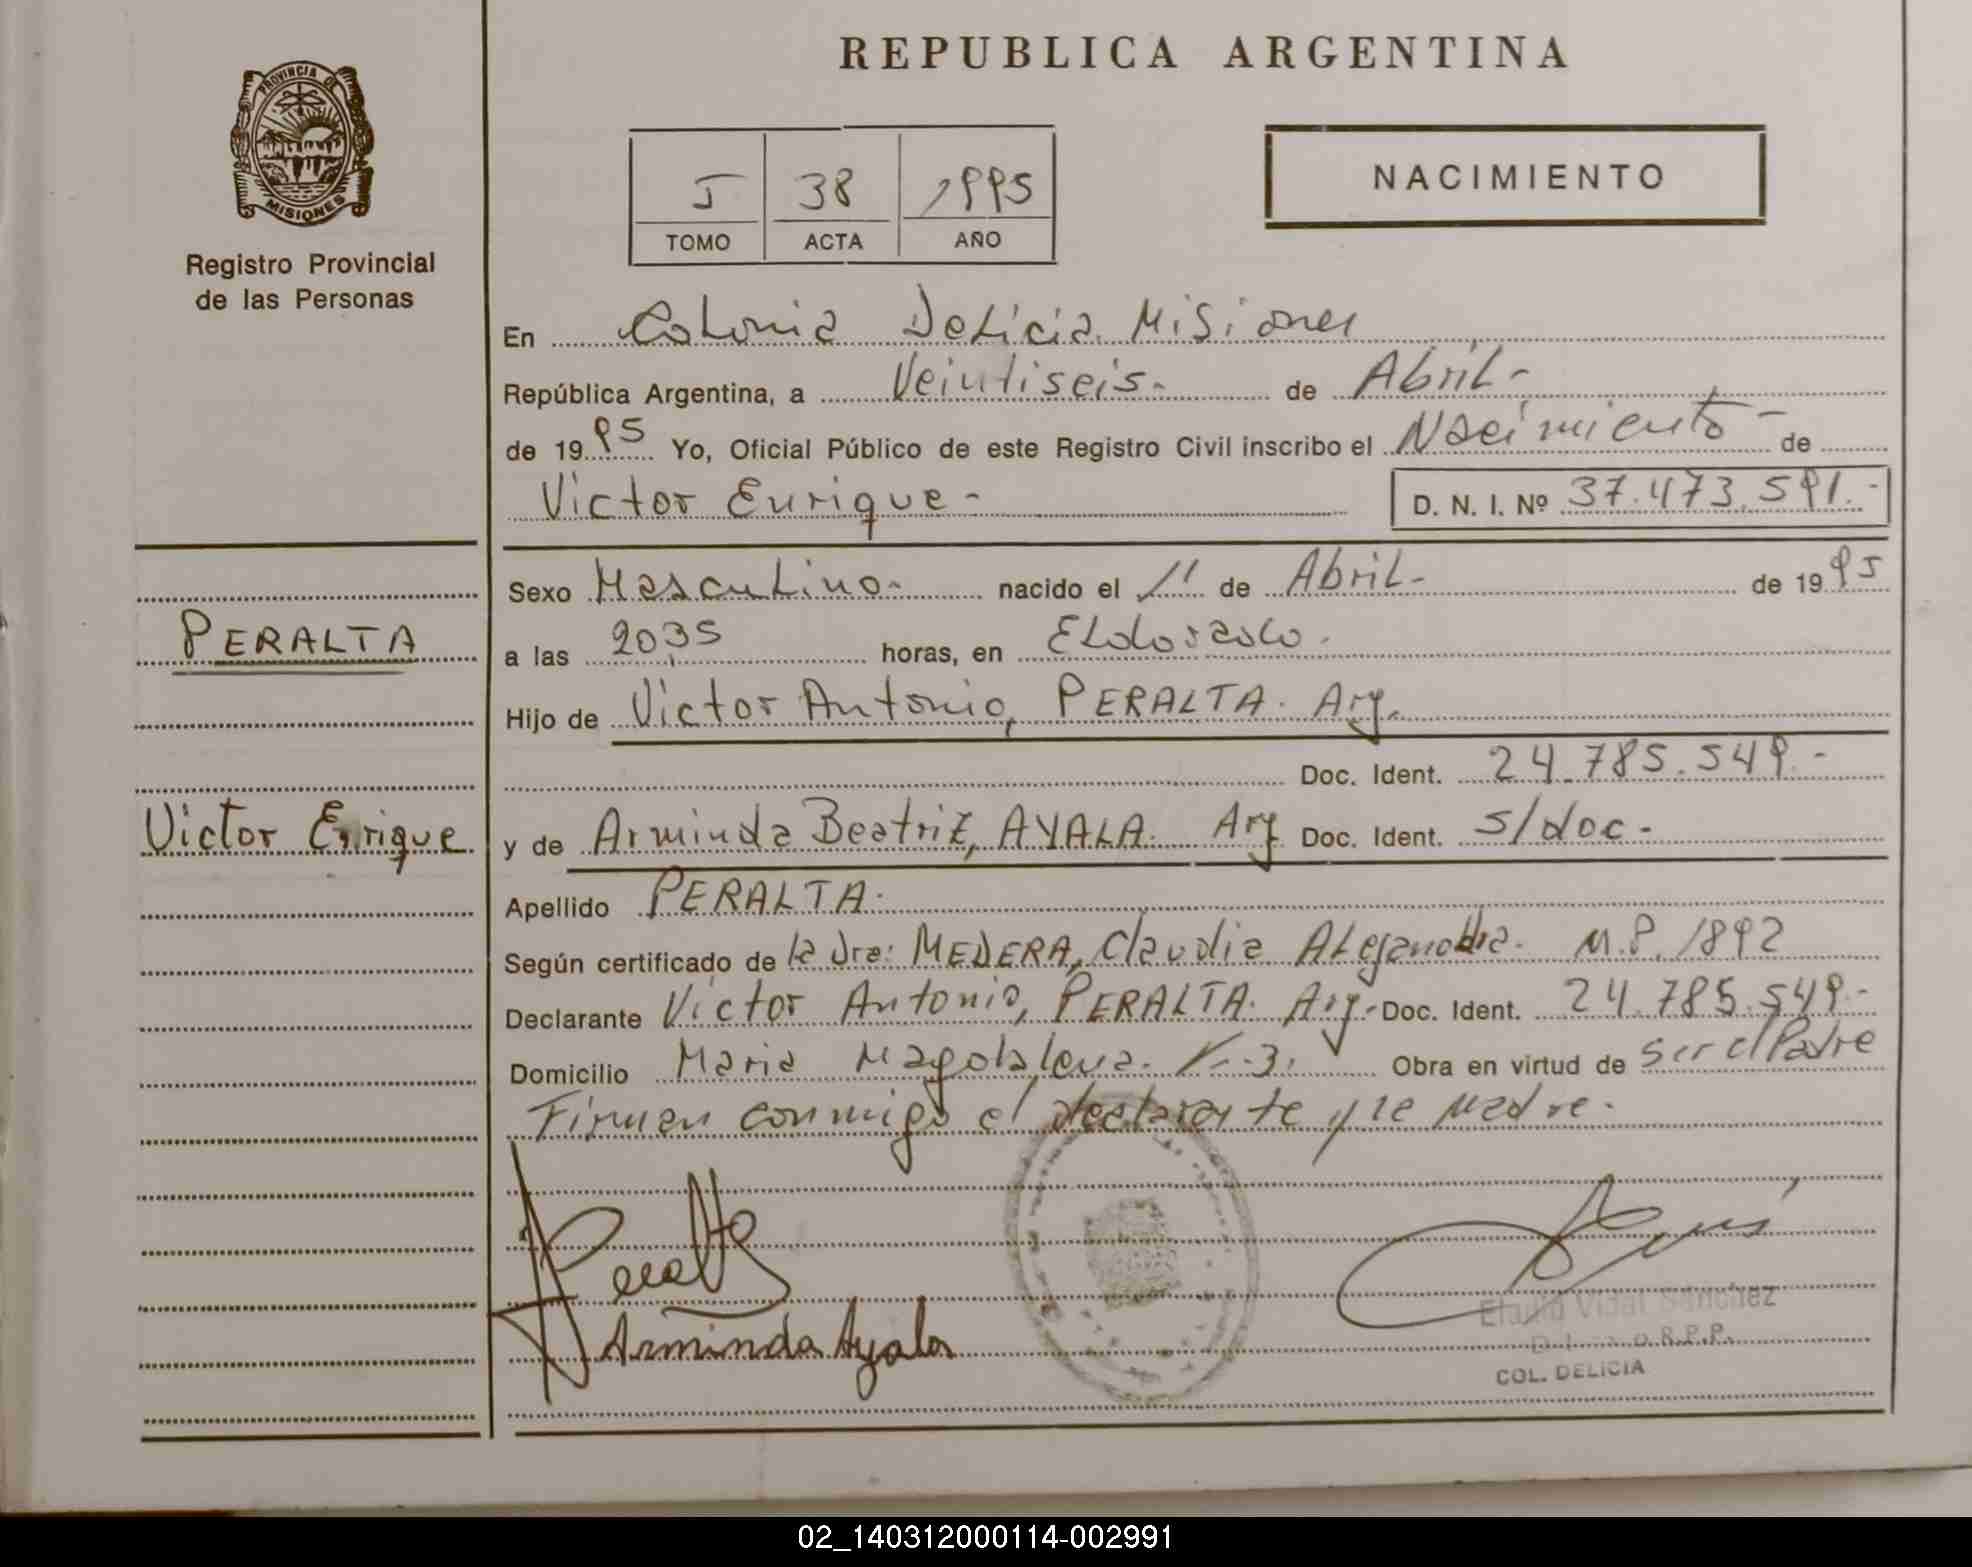 REPUBLICA ARGENTINA
PROVINCIA DE
MISIONES
Registro Provincial
de las Personas
I 38 1995
TOMO ACTA AÑO
NACIMIENTO
En Colonia Delicia. Misiones
República Argentina, a Veintiseis.- de Abril.-
de 1995 Yo, Oficial Público de este Registro Civil inscribo el Nacimiento - de
Victor Enrique - D. N. I. Nº 37.473.591.-
Sexo Masculino.- nacido el 11 de Abril.- de 1995
PERALTA
a las 2035 horas, en Eldorado.
Hijo de Victor Antonio, PERALTA. Arg.
Doc. Ident. 24.785.549.-
Victor Enrique
y de Arminda Beatriz, AYALA. Arg Doc. Ident. s/doc.-
Apellido PERALTA.
Según certificado de la Dra: MEDERA, Claudia Alejandra. M.P. 1892
Declarante Victor Antonio, PERALTA. Arg.- Doc. Ident. 24.785.549.-
Domicilio Maria Magdalena. K.3. Obra en virtud de ser el Padre
Firman conmigo el declarante y la madre.
Peralta
Arminda Ayala
Vidal Sanchez
R.P.P.
COL. DELICIA
02_140312000114-002991